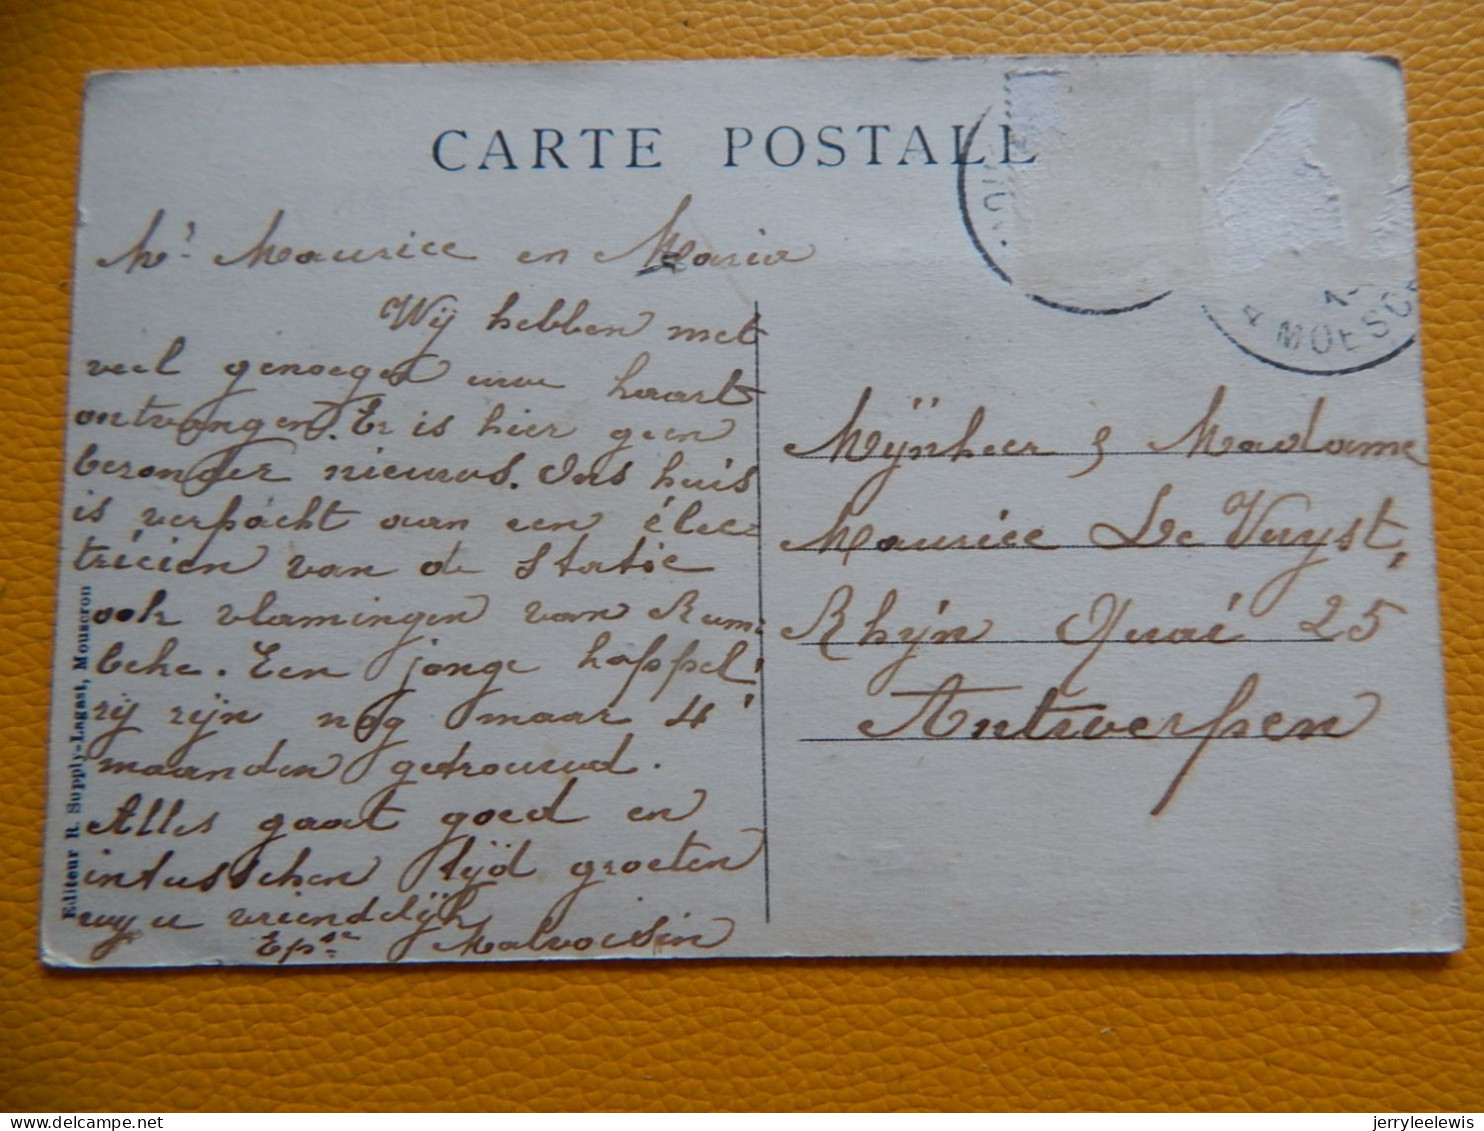 CARTE POSTALE
Mr. Maurice en Maria
Wij hebben met
veel genoegen uwe kaart
ontvangen. Er is hier geen
bezonder nieuws. Ons huis
is verpacht aan een élec-
tricien van de Statie
ook vlamingen van Rum-
beke. Een jonge koppel
zij zijn nog maar 4
maanden getrouwd.
Alles gaat goed en
intusschen tijd groeten
wij u vriendelijk
Epse Malvoisin
Mijnheer & Madame
Maurice De Vuyst,
Rhijn Quai 25
Antwerpen
MOESC
Editeur R. Supply-Lagast, Mouscron
jerryleelewis